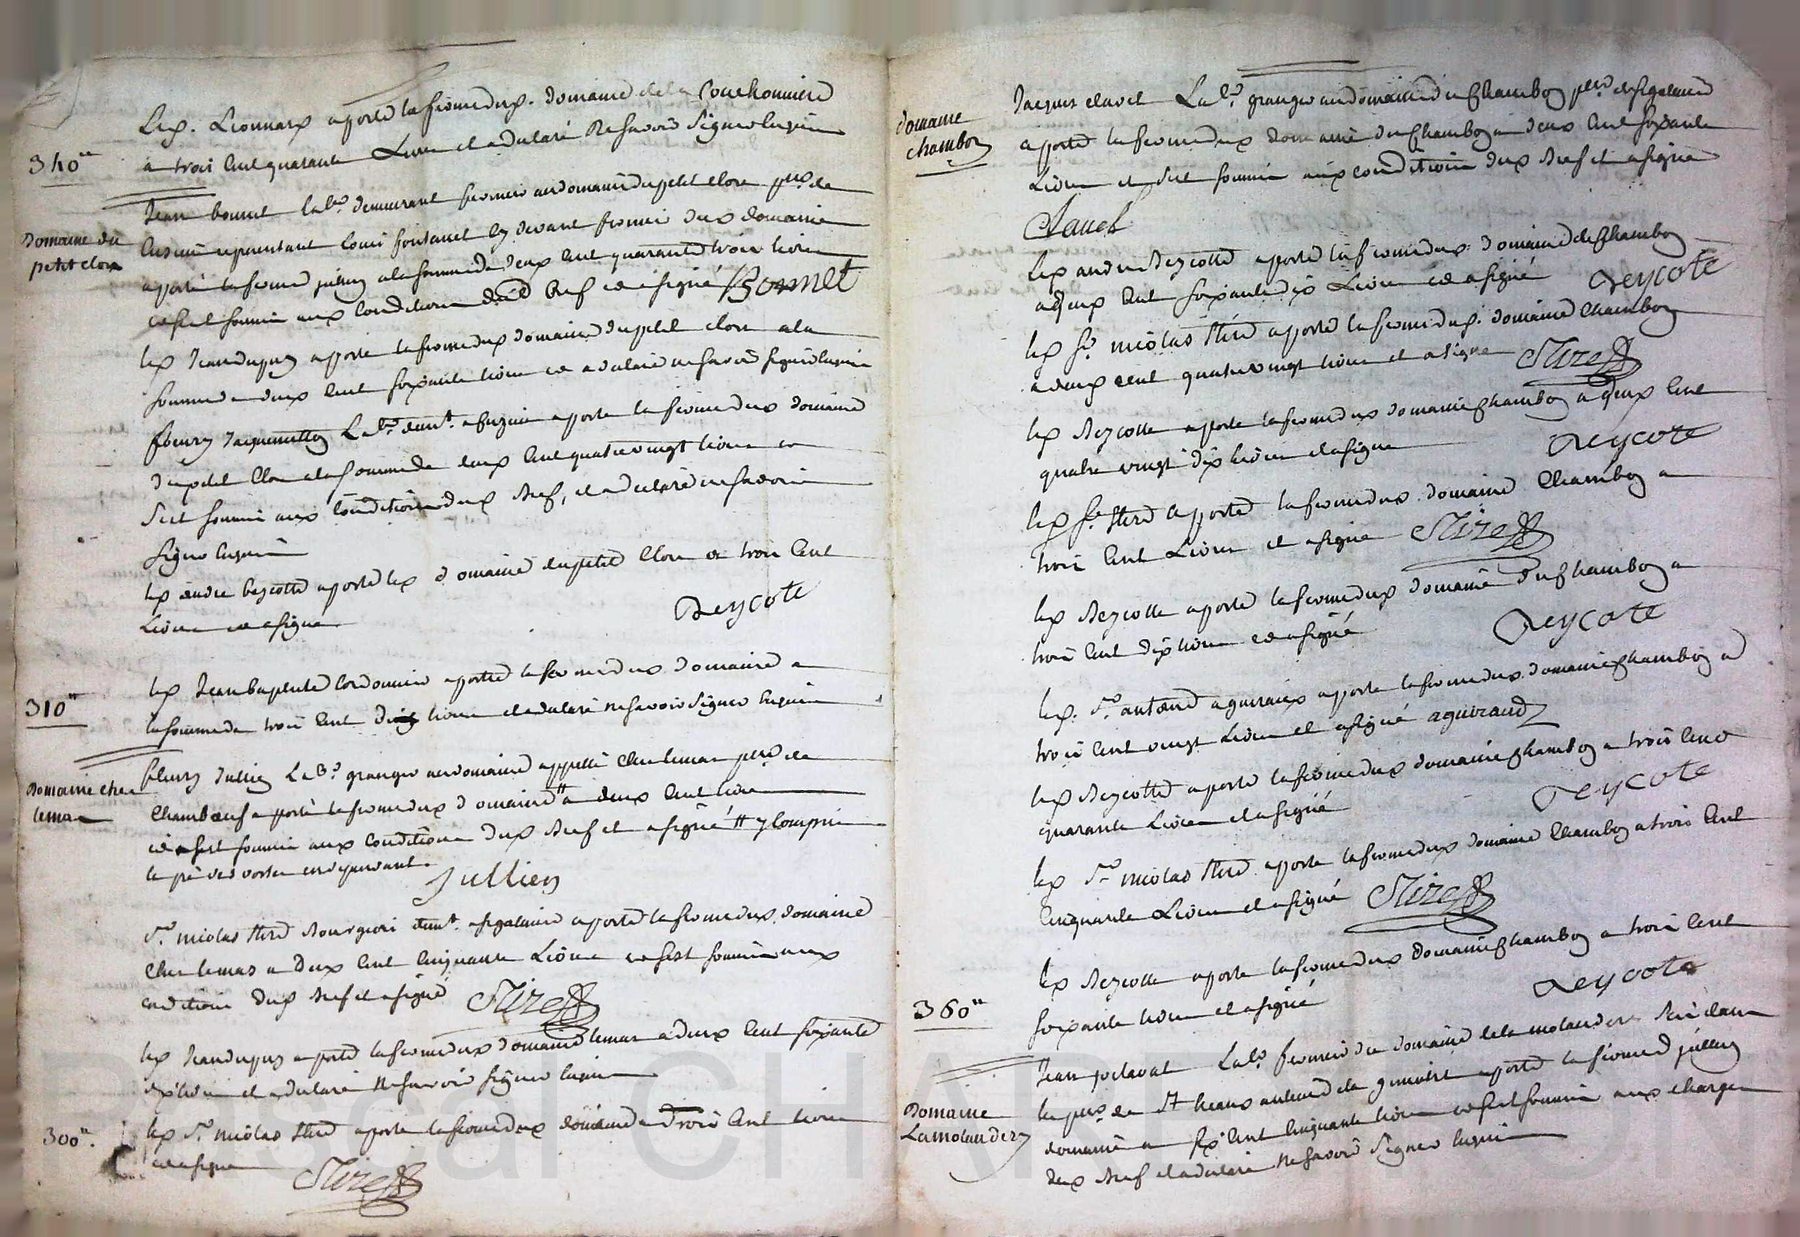 Led. Lionnard a porté la ferme dud. domaine de la Couchonniere
340ᵗᵗ
a trois cent quarante Livres et a déclaré ne savoir signer Enquis
Jean bonnet Lab.r demeurant fermier au domaine du petit clos p.sse de
Domaine du petit clos
representant Louis fontanet cy devant fermier dud domaine
a porté la ferme a la somme de deux cent quarante trois livres
et sest soumis aux conditions dud Bref et a signé Bonnet
led Jean dupuy a porté la ferme dud domaine du petit clos a la
somme de deux cent soixante livres et a déclaré ne savoir signer enquis
fleury Jaquemetton Lab.r dem.t a a porté la ferme dud domaine
du petit Clos a la somme de deux Cent quatre vingt livres
sest soumis aux Conditions dud Bref, et a déclaré ne savoir
signer enquis
led andré Reycotte a porté led domaine du petit Clos a trois Cent
Livres et a signé
Reycote
led Jean baptiste Cordonnier a porté la ferme dud domaine a
310ᵗᵗ
la somme de trois Cent dix livres et a déclaré ne savoir signer Enquis
fleury Jullien Lab.r granger au domaine appellé Chez lemas p.sse de
Domaine chez lemas
Chambœuf a porté la ferme dud domaine # a deux Cent livres
et sest soumis aux Conditions dud Bref et a signé # y Compris
le pré
Jullien
S.r nicolas Stire Bourgeois dem.t a sigalaire a porté la ferme dud domaine
Chez lemas a deux Cent Cinquante Livres sest soumis aux
conditions dud Bref et a signé Stire
led Jean dupuy a porté la ferme dud domaine lemas a deux Cent soixante
dix livres et a déclaré ne savoir signer enquis
300ᵗᵗ.
led S.r nicolas Stire a porté la ferme dud domaine a trois Cent livres
et a signé
Stire
Jacques clavel Lab.r granger au domaine du Chambon p.sse
domaine chambon
a porté la ferme dud domaine du Chambon a deux Cent soixante
Livres et sest soumis aux conditions dud Bref et a signé
Clavel
led andré Reycotte a porté la ferme dud. domaine de Chambon
a deux Cent soixante dix Livres et a signé Reycote
led S.r nicolas Stire a porté la ferme dud. domaine Chambon
a deux cent quatre vingt livres et a signé Stire
led Reycotte a porté la ferme dud domaine Chambon a deux Cent
quatre vingt dix livres et a signé
Reycote
led S.r Stire a porté la ferme dud. domaine Chambon a
trois Cent Livres et a signé Stire
led Reycotte a porté la ferme dud domaine du Chambon a
trois Cent dix livres et a signé
Reycote
led. S.r antoine aguiraud a porté la ferme dud. domaine Chambon a
trois Cent vingt Livres et a signé aguiraud
led Reycotte a porté la ferme dud domaine Chambon a trois Cent
quarante Livres et a signé
Reycote
led S.r nicolas Stire a porté la ferme dud domaine Chambon a trois Cent
Cinquante Livres et a signé Stire
led Reycotte a porté la ferme dud domaine Chambon a trois Cent
360ᵗᵗ
soixante livres et a signé
Reycote
Jean Lab.r fermier du domaine de la molandery
Domaine Lamolandery
la p.sse de St a porté la ferme
domaine a six Cent Cinquante livres et sest soumis aux charges
dud Bref et a déclaré ne savoir signer Enquis
Pascal